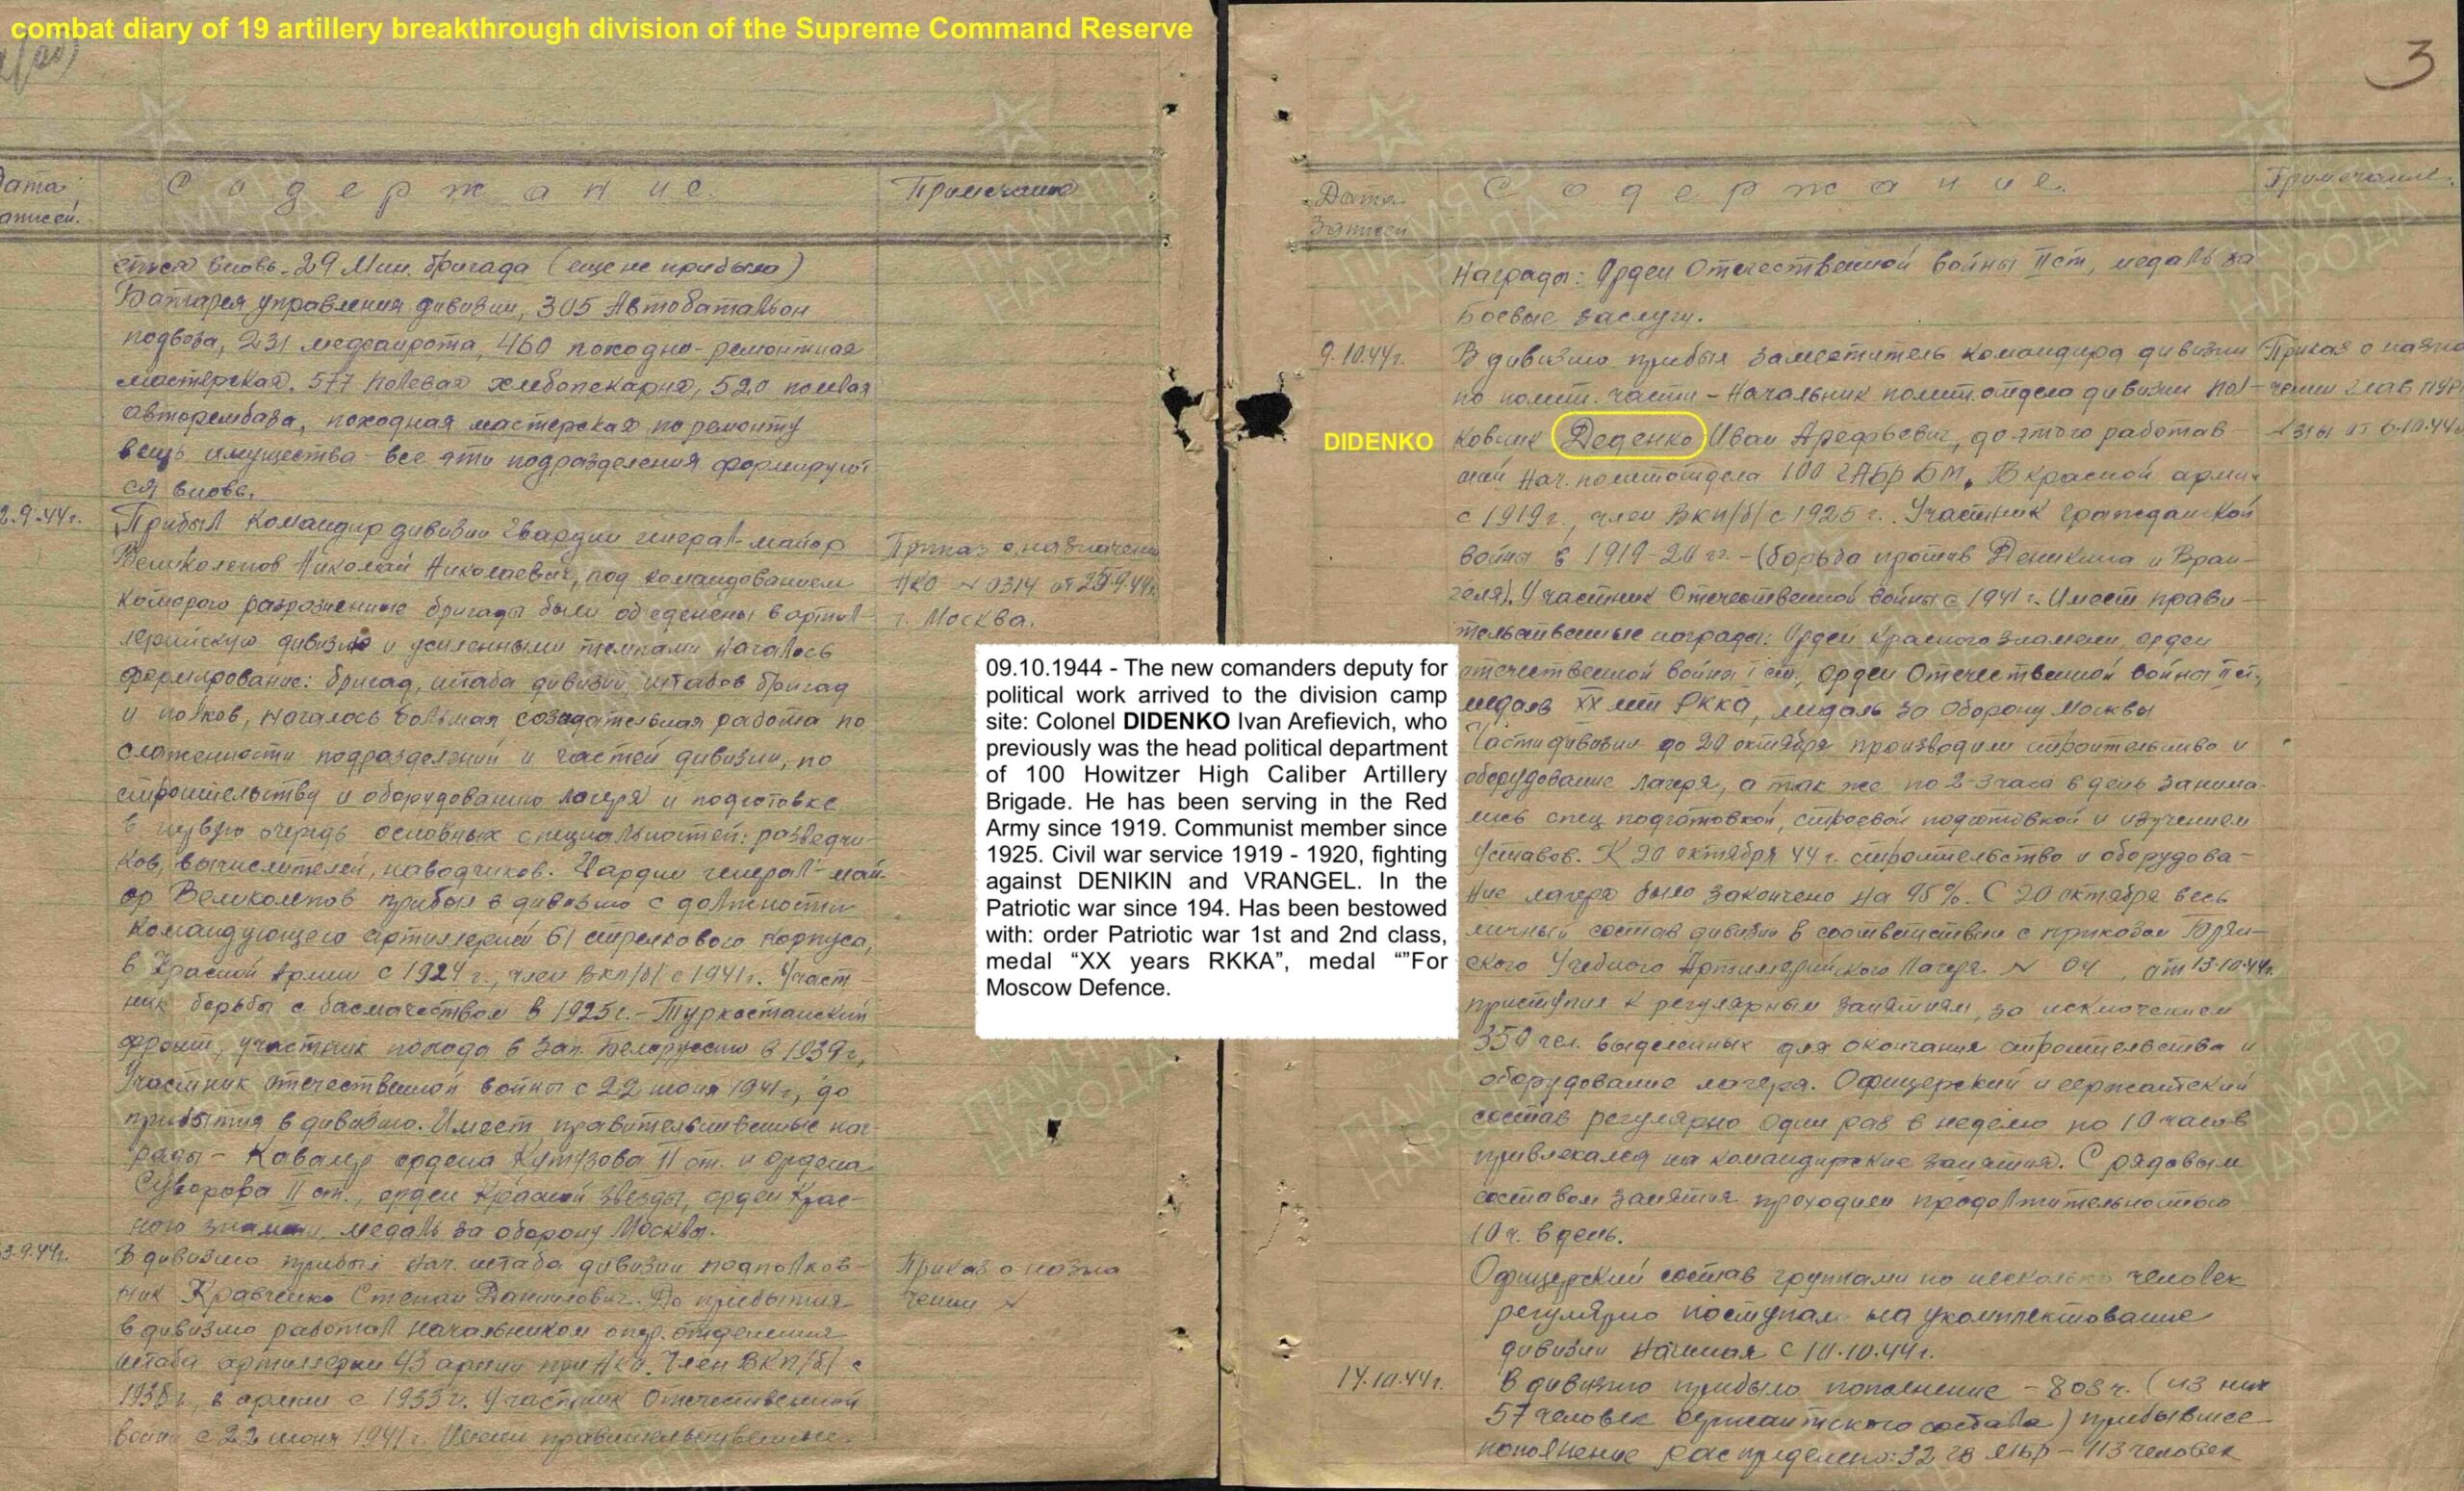 combat diary of 19 artillery breakthrough division of the Supreme Command Reserve
3
Дата
Содержание.
Примечание
ется вновь. 29 Мин. бригада (еще не прибыла)
Батарея управления дивизии, 305 Автобатальон
подвоза, 231 медсанрота, 460 походно-ремонтная
мастерская. 577 полевая хлебопекарня, 520 полевая
авторембаза, походная мастерская по ремонту
вещ. имущества - все эти подразделения формируют
ся вновь.
2.9.44г.
Прибыл командир дивизии Гвардии генерал-майор
Великолепов Николай Николаевич, под командованием
которого разрозненные бригады были объеденены в артил-
лерийскую дивизию и усиленными темпами началось
формирование: бригад, штаба дивизии, штабов бригад
и полков, началось большая созидательная работа по
слаженности подразделений и частей дивизии, по
строительству и оборудованию лагеря и подготовке
в первую очередь основных специальностей: разведчи-
ков, вычислителей, наводчиков. Гвардии генерал-май-
ор Великолепов прибыл в дивизию с должности
командующего артиллерией 61 стрелкового корпуса,
в Красной Армии с 1924 г., член ВКП/б/ с 1941 г. Участ-
ник борьбы с басмачеством в 1925 г. - Туркестанский
фронт, участник похода в Зап. Белоруссию в 1939 г.,
Участник отечественной войны с 22 июня 1941 г., до
прибытия в дивизию. Имеет правительственные наг-
рады - Кавалер ордена Кутузова II ст. и ордена
Суворова II ст., орден Красной Звезды, орден Крас-
ного знамени, медаль за оборону Москвы.
Приказ о назначении
НКО № 0314 от
г. Москва.
3.9.44г.
В дивизию прибыл нач. штаба дивизии подполков-
ник Кравченко Степан Данилович. До прибытия
в дивизию работал начальником опер. отделения
штаба артиллерии 43 армии при НКО. Член ВКП/б/ с
1938 г., в армии с 1933 г. Участник Отечественной
войны с 22 июня 1941 г. Имеет правительственные
Приказ о назна
чении №
Дата
Записей
Содержание.
Примечание.
Награды: Орден Отечественной войны II ст, медаль за
Боевые заслуги.
9.10.44г.
В дивизию прибыл заместитель командира дивизии
по полит. части - Начальник полит. отдела дивизии пол-
DIDENKO
ковник Деденко Иван Арефьевич, до этого работав-
ший нач. политотдела 100 ГАБр БМ. В красной армии
с 1919 г., член ВКП/б/ с 1925 г. Участник гражданской
войны в 1919-20 гг. - (борьба против Деникина и Вран-
геля). Участник Отечественной войны с 1941 г. Имеет прави-
тельственные награды: Орден Красного знамени, орден
отечественной война I ст, Орден Отечественной война II ст.,
медаль XX лет РККА, медаль за оборону Москвы
Приказ о назна
чении Глав ПУР
09.10.1944 - The new comanders deputy for
political work arrived to the division camp
site: Colonel DIDENKO Ivan Arefievich, who
previously was the head political department
of 100 Howitzer High Caliber Artillery
Brigade. He has been serving in the Red
Army since 1919. Communist member since
1925. Civil war service 1919 - 1920, fighting
against DENIKIN and VRANGEL. In the
Patriotic war since 194. Has been bestowed
with: order Patriotic war 1st and 2nd class,
medal “XX years RKKA”, medal “”For
Moscow Defence.
Части дивизии до 20 октября производили строительство и
оборудование лагеря, а так же по 2-3 часа в день занима-
лись спец подготовкой, строевой подготовкой и изучением
Уставов. К 20 октября 44 г. строительство и оборудова-
ние лагеря было закончено на 95%. С 20 октября весь
личный состав дивизии в соответствии с приказом
ского Учебного Артиллерийского Лагеря № 04, от 13.10.44г.
приступил к регулярным занятиям, за исключением
350 чел. выделенных для окончания строительства и
оборудование лагеря. Офицерский и сержантский
состав регулярно один раз в неделю по 10 часов
привлекался на командирские занятия. С рядовым
составом занятия проходили продолжительностью
10 ч. в день.
Офицерский состав группами по несколько человек
регулярно поступал на укомплектование
дивизии начиная с 10.10.44г.
14.10.44г.
В дивизию прибыло пополнение - 803 ч. (из них
57 человек сержантского состава) прибывшее
пополнение распределено: 32 - 113 человек
ПАМЯТЬ
НАРОДА